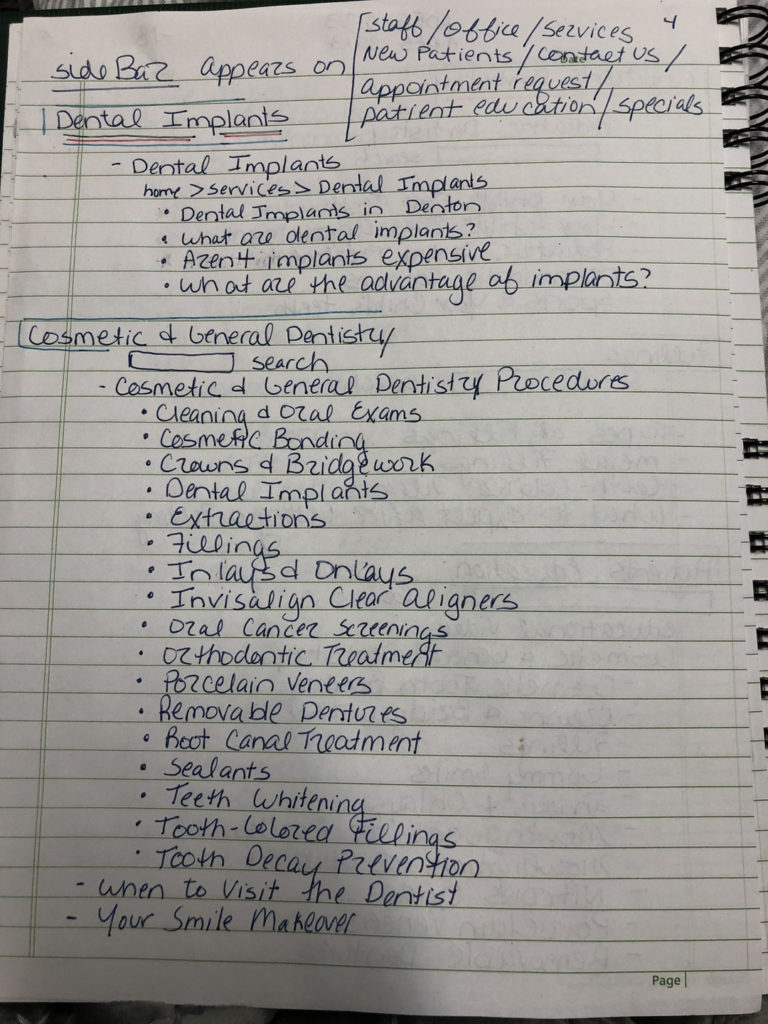 4
staff / Office / Services
New Patients / Contact Us /
appointment request /
patient education / specials
sideBar appears on
Dental Implants
- Dental Implants
home > services > Dental Implants
• Dental Implants in Denton
• What are dental implants?
• Aren't implants expensive
• What are the advantage of implants?
Cosmetic & General Dentistry
search
- Cosmetic & General Dentistry Procedures
• Cleaning & Oral Exams
• Cosmetic Bonding
• Crowns & Bridgework
• Dental Implants
• Extractions
• Fillings
• Inlays & Onlays
• Invisalign Clear Aligners
• Oral Cancer Screenings
• Orthodontic Treatment
• Porcelain Veneers
• Removable Dentures
• Root Canal Treatment
• Sealants
• Teeth Whitening
• Tooth-Colored Fillings
• Tooth Decay Prevention
- When to Visit the Dentist
- Your Smile Makeover
Page